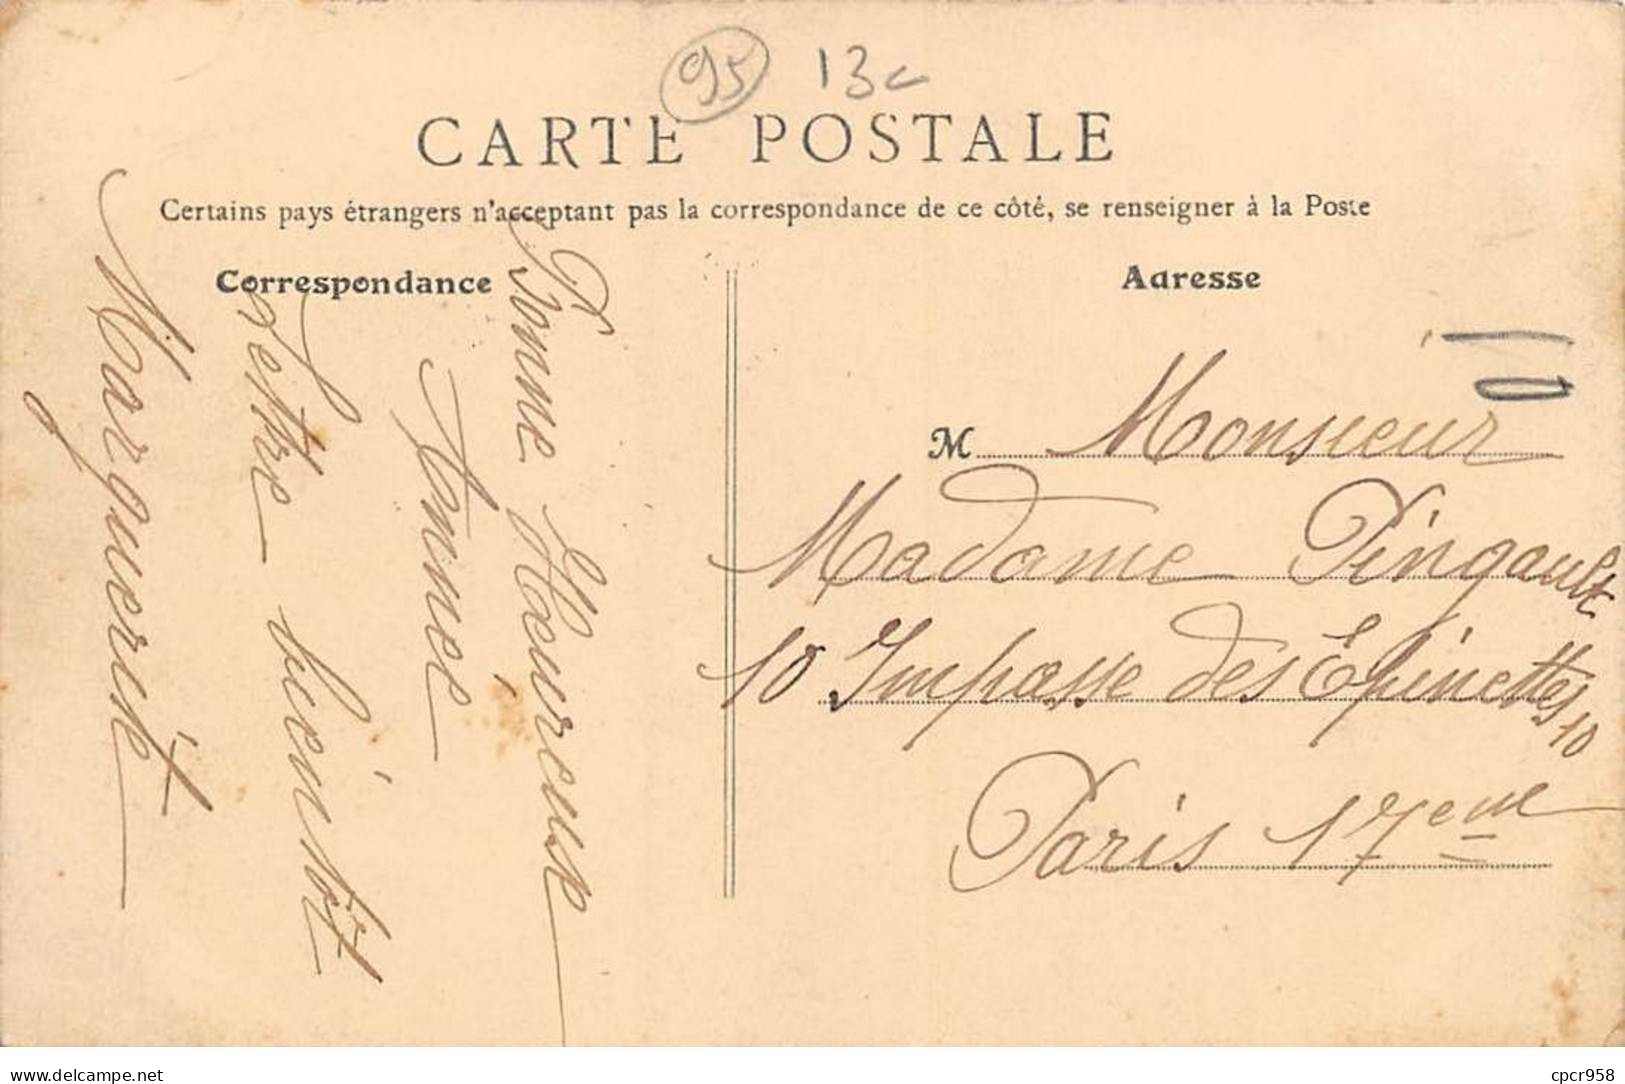 95 13c
CARTE POSTALE
Certains pays étrangers n'acceptant pas la correspondance de ce côté, se renseigner à la Poste
Correspondance
Bonne Heureuse
Annee
Lettre bientot
Marguerite
Adresse
10
M Monsieur
Madame Pingault
10 Impasse des Épinettes 10
Paris 17eme
delcampe.net
cpcr958